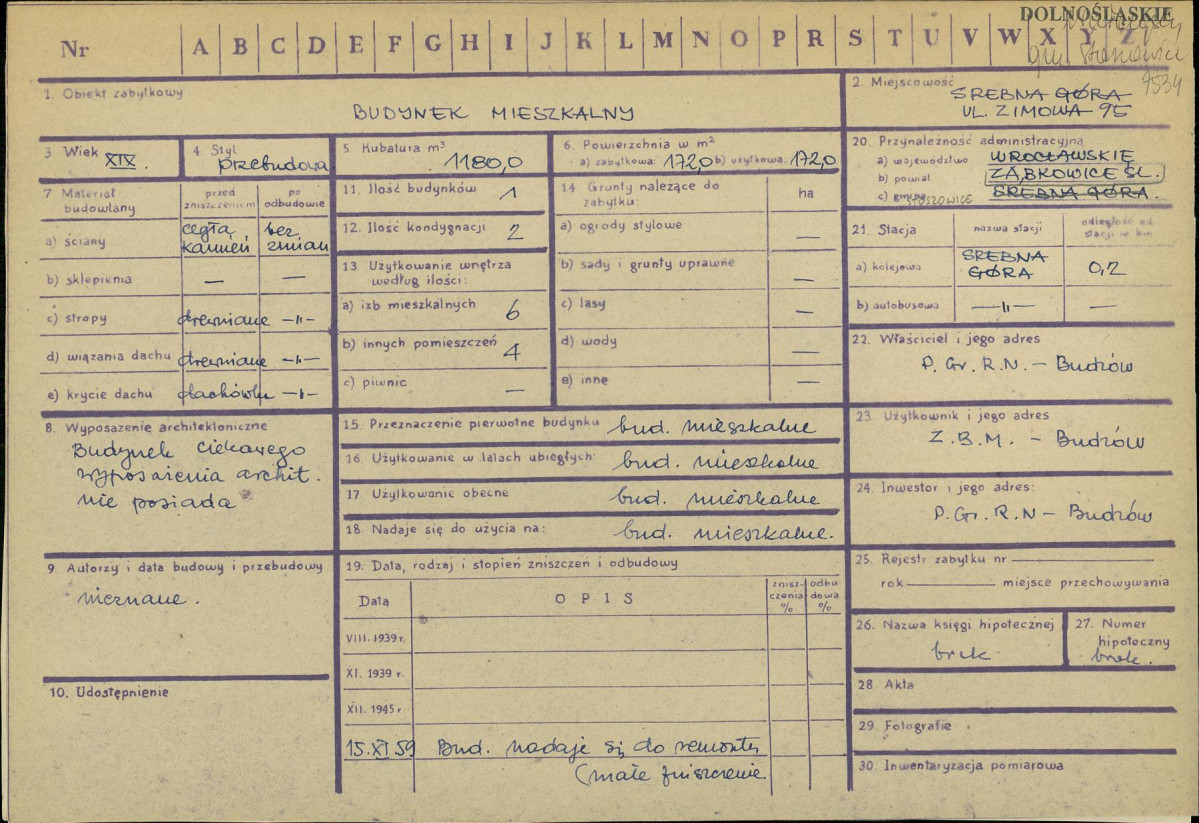 DOLNOŚLĄSKIE
Nr A B C D E F G H I J K L M N O P R S T U V W X Y Z
gm. Stoszowice
7534
1. Obiekt zabytkowy
BUDYNEK MIESZKALNY
2. Miejscowość
SREBNA GÓRA
UL. ZIMOWA 95
3 Wiek XIX.
4. Styl przebudowa
5. Kubatura m³ 1180,0
6. Powierzchnia w m²
a) zabytkowa: 172,0 b) użytkowa: 172,0
20. Przynależność administracyjna
a) województwo WROCŁAWSKIE
b) powiat ZĄBKOWICE ŚL.
c) gmina STOSZOWICE SREBNA GÓRA.
7 Materiał budowlany
przed zniszczeniem
po odbudowie
a) ściany cegła kamień bez zmian
b) sklepienia — —
c) stropy drewniane —"—
d) wiązania dachu drewniane —"—
e) krycie dachu dachówka —"—
11. Ilość budynków 1
12. Ilość kondygnacji 2
13. Użytkowanie wnętrza
według ilości:
a) izb mieszkalnych 6
b) innych pomieszczeń 4
c) piwnic —
14 Grunty należące do
zabytku:
ha
a) ogrody stylowe —
b) sady i grunty uprawne —
c) lasy —
d) wody —
e) inne —
21. Stacja
nazwa stacji
odległość od
stacji w km
a) kolejowa SREBNA GÓRA 0,2
b) autobusowa —"— —
22. Właściciel i jego adres
P. Gr. R. N. — Budzów
23. Użytkownik i jego adres
Z. B. M. — Budzów
24. Inwestor i jego adres:
P. Gr. R. N — Budzów
8. Wyposażenie architektoniczne
Budynek ciekawego
wyposażenia archit.
nie posiada
15. Przeznaczenie pierwotne budynku bud. mieszkalne
16. Użytkowanie w latach ubiegłych: bud. mieszkalne
17. Użytkowanie obecne bud. mieszkalne
18. Nadaje się do użycia na: bud. mieszkalne.
9. Autorzy i data budowy i przebudowy
nieznane.
10. Udostępnienie
19. Data, rodzaj i stopień zniszczeń i odbudowy
Data
OPIS
znisz-
czenia
%
odbu-
dowa
%
VIII. 1939 r.
XI. 1939 r.
XII. 1945 r
15.XI 59 Bud. nadaje się do remontu
(małe zniszczenie
25. Rejestr zabytku nr
rok miejsce przechowywania
26. Nazwa księgi hipotecznej
brak
27. Numer
hipoteczny
brak.
28 Akta
29. Fotografie
30. Inwentaryzacja pomiarowa